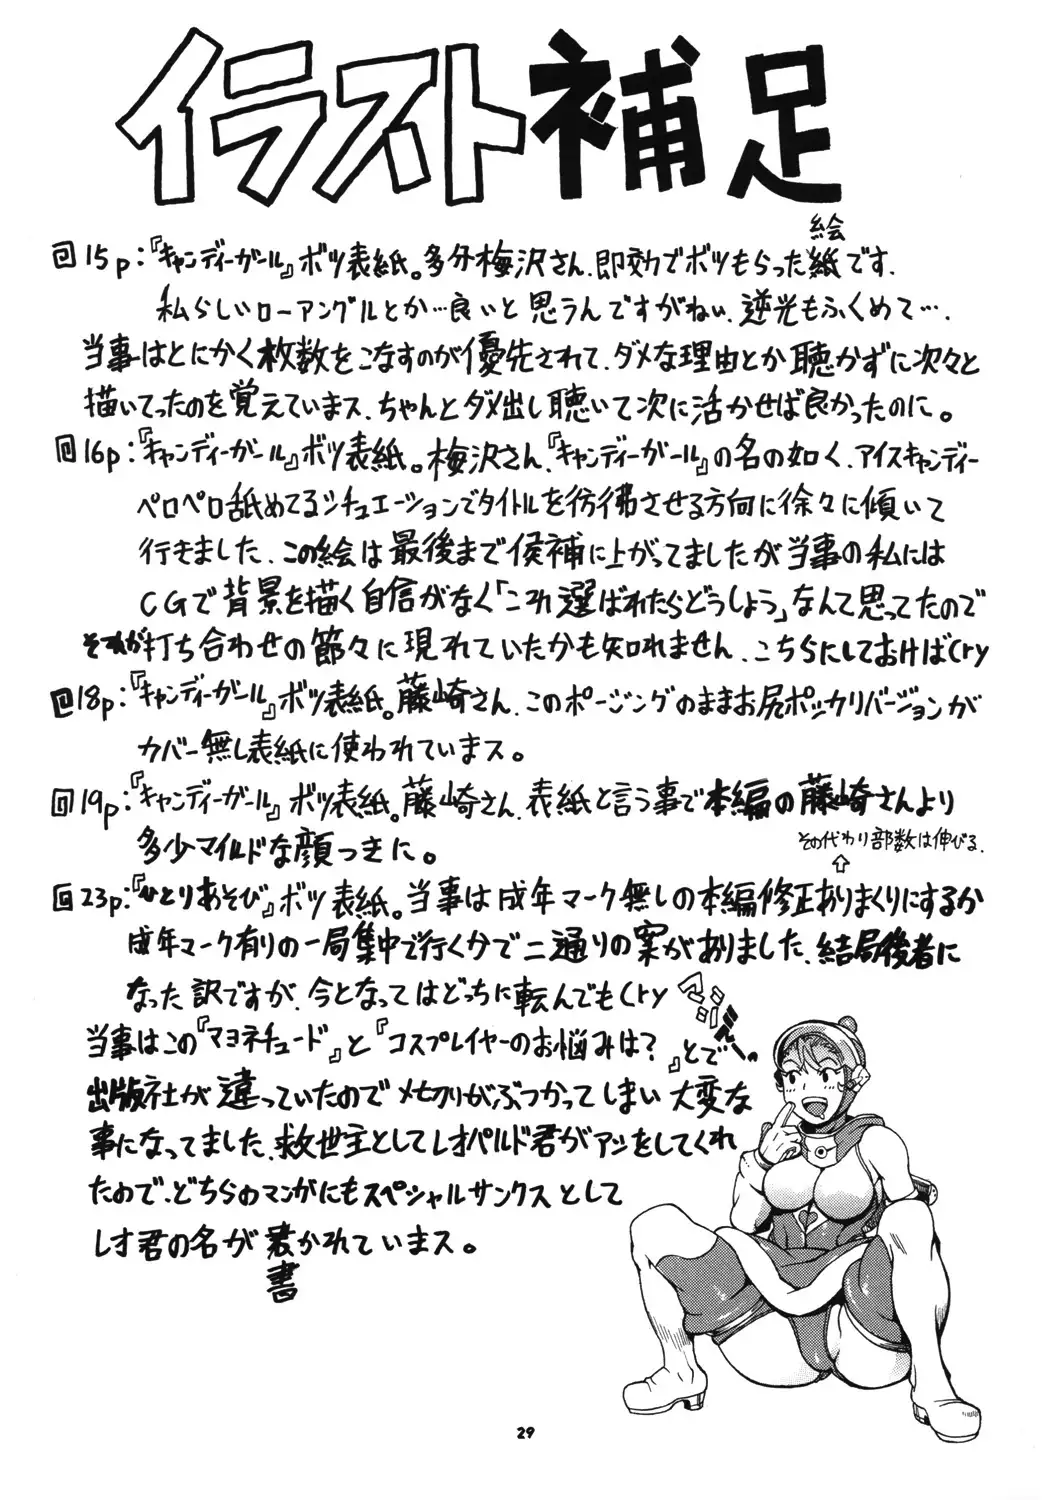 イラスト補足
回15p:『キャンディーガール』ボツ表紙。多分梅沢さん、即効でボツもらった紙です.
絵
私らしいローアングルとか…良いと思うんですがねぃ、逆光もふくめて….
当事はとにかく枚数をこなすのが優先されて、ダメな理由とか聴かずに次々と
描いてったのを覚えていまス、ちゃんとダメ出し聴いて次に活かせば良かったのに。
回16p:『キャンディーガール』ボツ表紙。梅沢さん、『キャンディーガール』の名の如く、アイスキャンディー
ペロペロ舐めてるシチュエーションでタイトルを彷彿させる方向に徐々に傾いて
行きました、この絵は最後まで候補に上がってましたが当事の私には
CGで背景を描く自信がなく「これ選ばれたらどうしよう」なんて思ってたので
それが打ち合わせの節々に現れていたかも知れません、こちらにしておけばCry
回18p:『キャンディーガール』ボツ表紙。藤崎さん、このポージングのままお尻ポッカリバージョンが
カバー無し表紙に使われていまス。
回19p:『キャンディーガール』ボツ表紙。藤崎さん、表紙と言う事で本編の藤崎さんより
多少マイルドな顔つきに。
その代わり部数は伸びる.
⇧
回23p:『ひとりあそび』ボツ表紙。当事は成年マーク無しの本編修正ありまくりにするか
成年マーク有りの一局集中で行くかで二通りの案がありました、結局後者に
なった訳ですが、今となってはどっちに転んでもCry
当事はこの『マヨネチュード』と『コスプレイヤーのお悩みは?』とで
出版社が違っていたのでメ切りがぶつかってしまい大変な
事になってました、救世主としてレオパルド君がアシをしてくれ
たので、どちらのマンガにもスペシャルサンクスとして
レオ君の名が書かれていまス。
書
29